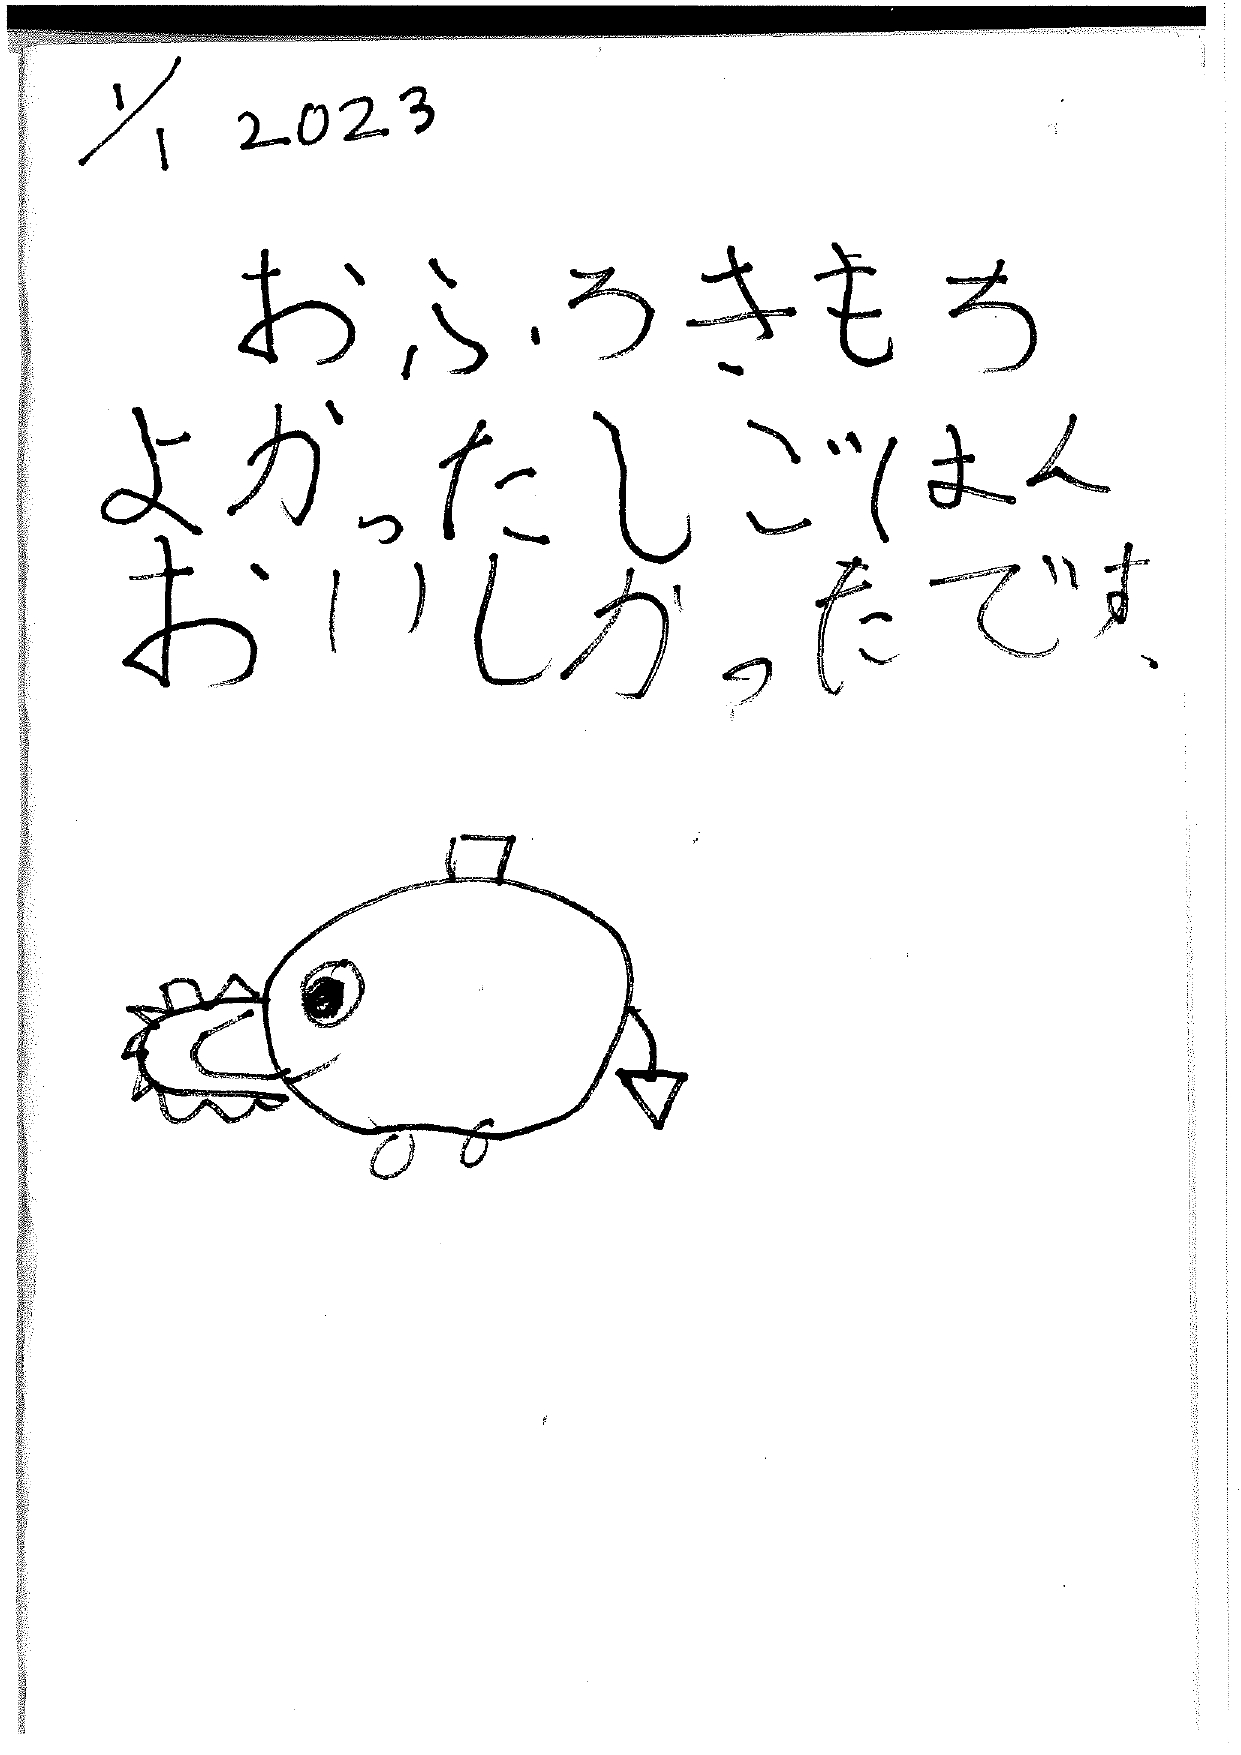 1/1 2023
おふろきもち
よかったしごはん
おいしかったです、